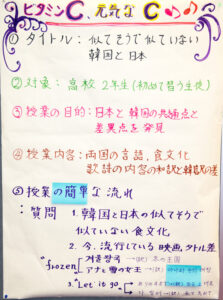 ビタミンC、元気な C ♪♪
① タイトル: 似てそうで似ていない
韓国と日本
② 対象: 高校 2年生(初めて習う生徒)
③ 授業の目的: 日本と韓国の共通点と
差異点を発見
④ 授業内容: 両国の言語、食文化
歌詞の内容の和訳と韓訳の差
⑤ 授業の簡単な流れ
: 質問 1. 韓国と日本の似てそうで
似ていない食文化
2. 今、流行している映画、タトル差
"frozen 겨울왕국 →(訳) 冬の王国
アナと雪の女王 →(訳)
3. "Let it go